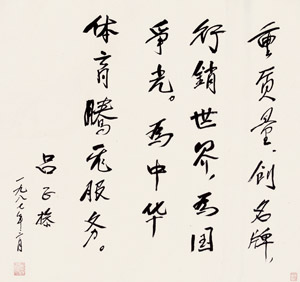 重质量，创名牌，
行銷世界，为国
爭光。为中华
体育騰飛服务。
吕正操
一九八七年二月